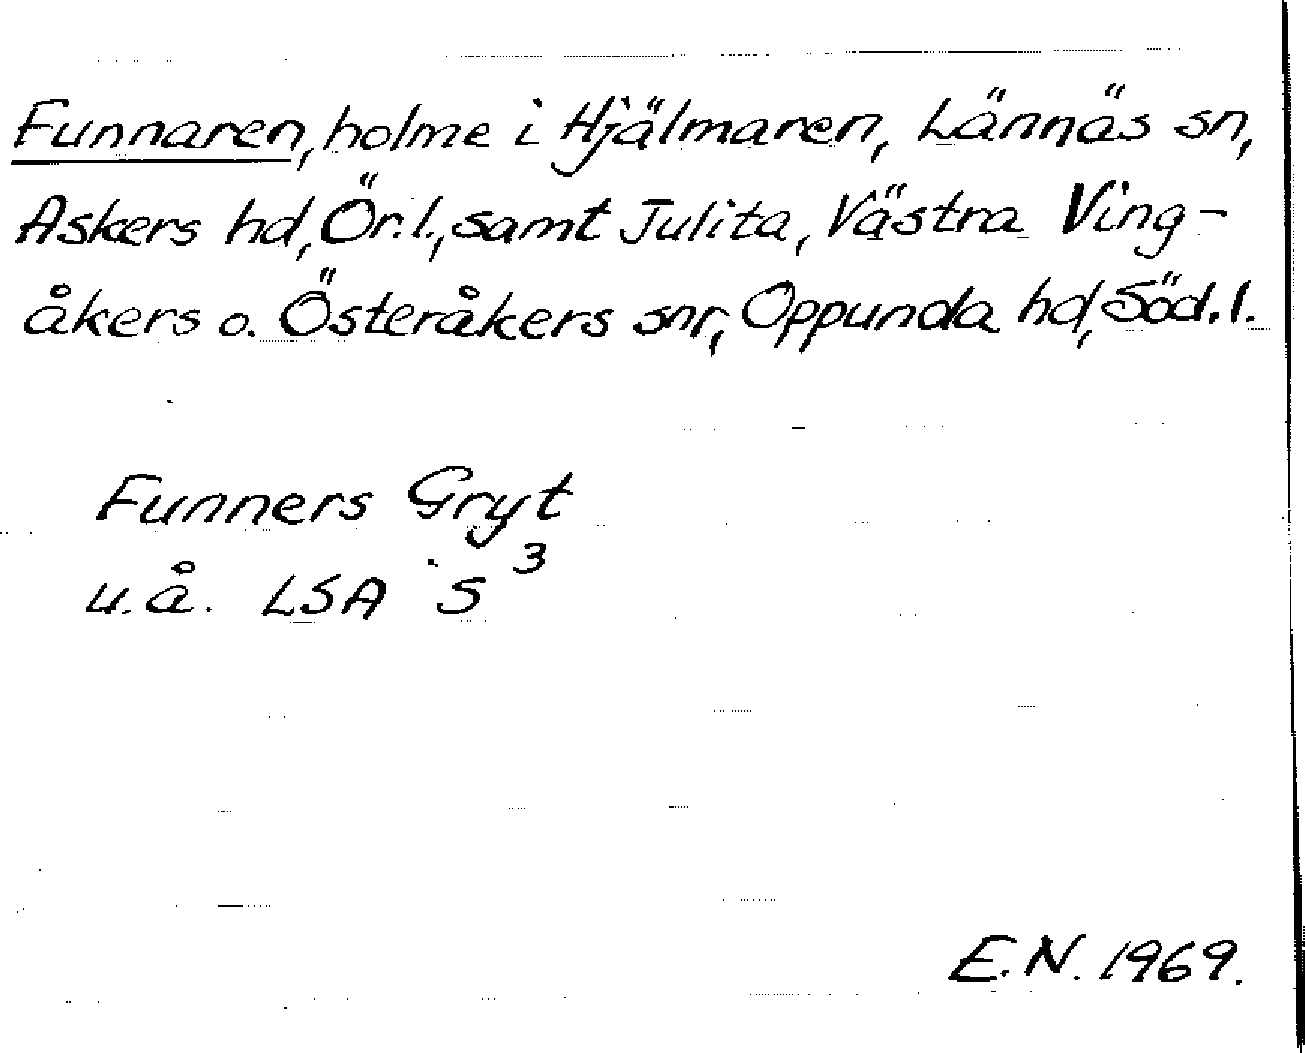 Funnaren, holme i Hjälmaren, Lännäs sn,
Askers hd, Ör. l., samt Julita, Västra Ving-
åkers o. Österåkers snr, Oppunda hd, Söd. l.
Funners Gryt
u.å. LSA S 3
E.N. 1969.